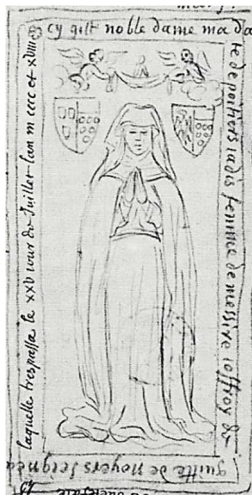 cy gist noble dame ma da
te de poitiers iadis femme de messire ioffroy de
quitte de noyers seigneu
laquelle trespassa le xxv iour de Juillet lan m cccc et xiiii